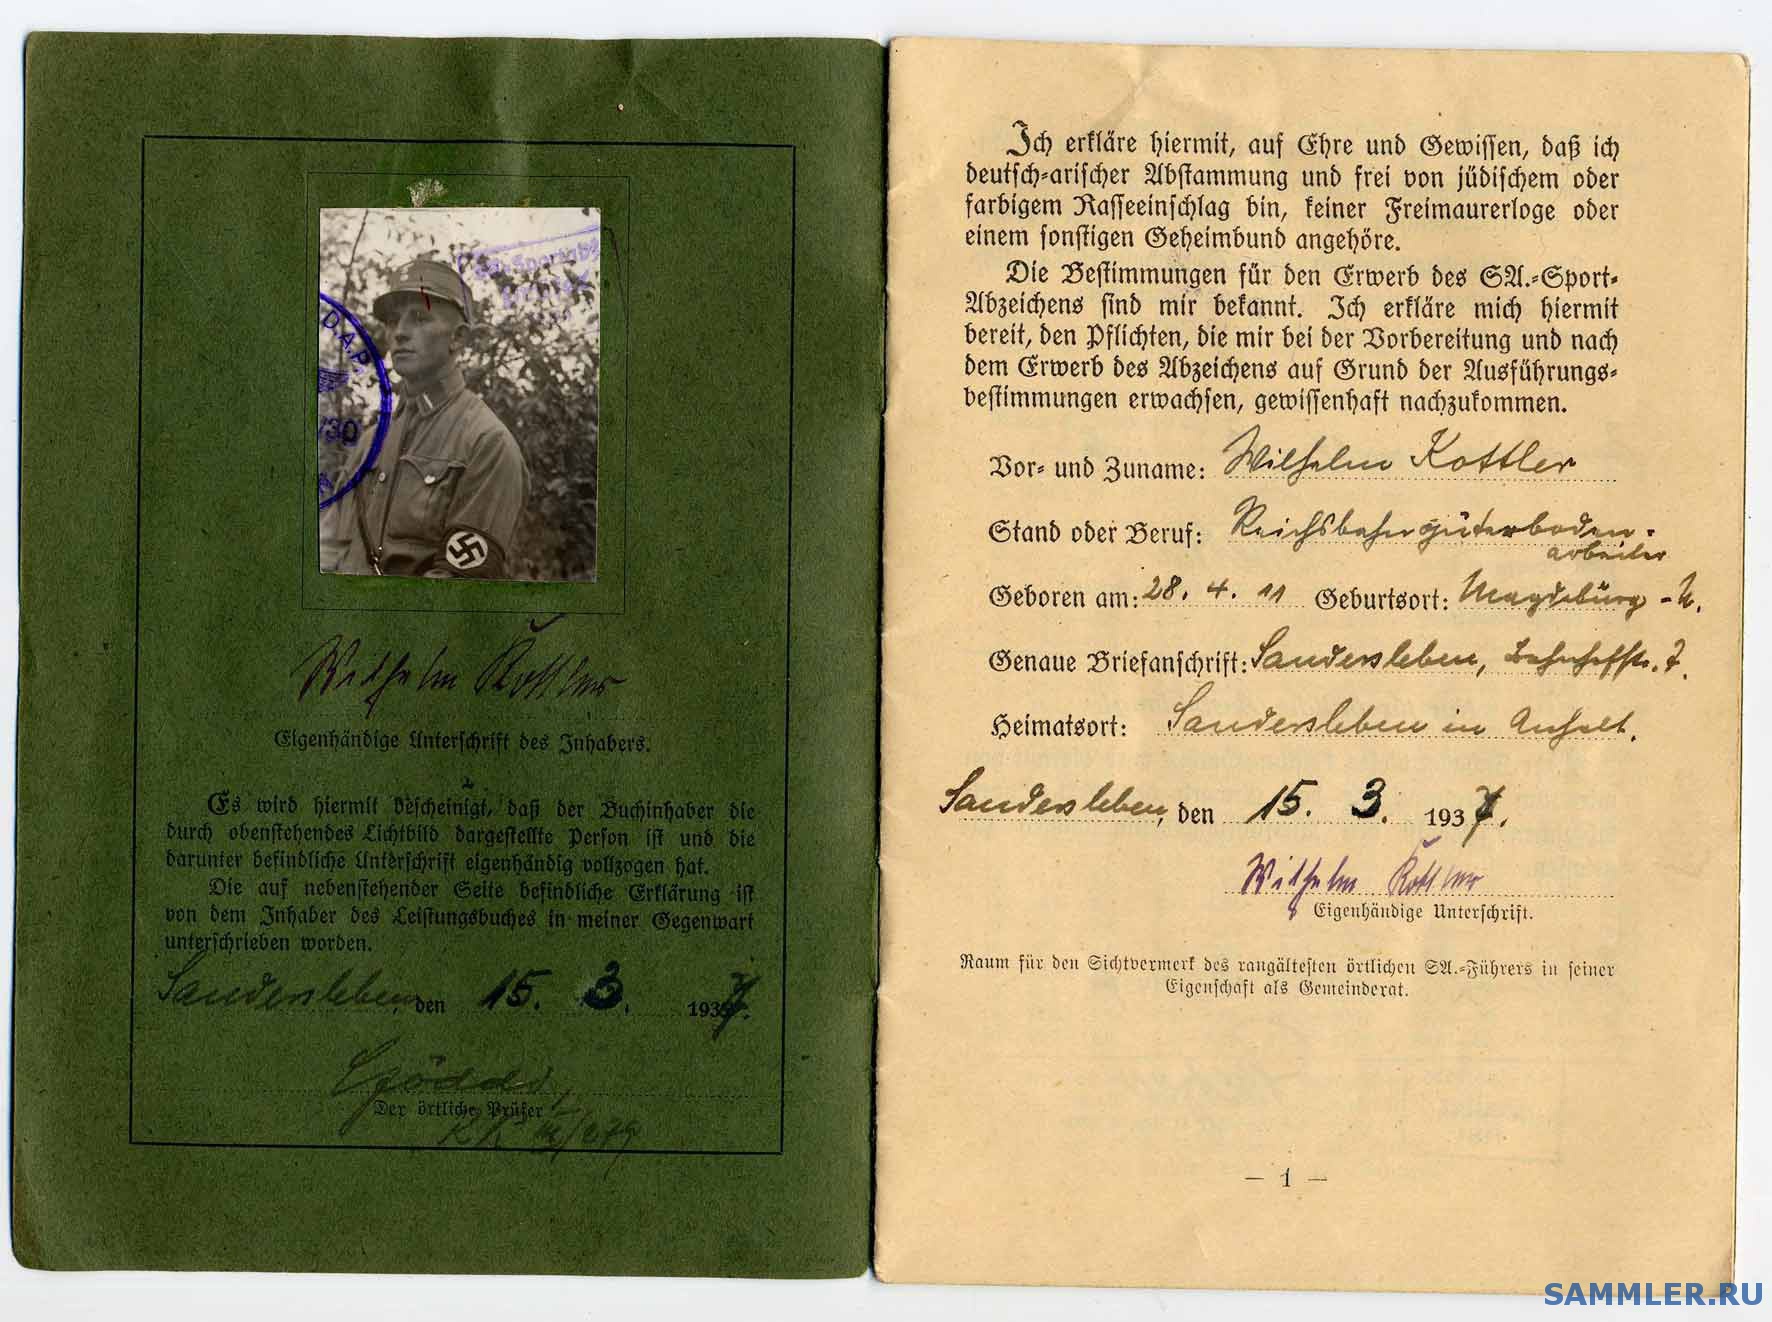 D.A.P.
130
Wilhelm Kottler
Eigenhändige Unterschrift des Inhabers.
Es wird hiermit bescheinigt, daß der Buchinhaber die
durch obenstehendes Lichtbild dargestellte Person ist und die
darunter befindliche Unterschrift eigenhändig vollzogen hat.
Die auf nebenstehender Seite befindliche Erklärung ist
von dem Inhaber des Leistungsbuches in meiner Gegenwart
unterschrieben worden.
Sandersleben, den 15. 3. 1937.
Der örtliche Prüfer
Ich erkläre hiermit, auf Ehre und Gewissen, daß ich
deutsch-arischer Abstammung und frei von jüdischem oder
farbigem Rasseeinschlag bin, keiner Freimaurerloge oder
einem sonstigen Geheimbund angehöre.
Die Bestimmungen für den Erwerb des SA.-Sport-
Abzeichens sind mir bekannt. Ich erkläre mich hiermit
bereit, den Pflichten, die mir bei der Vorbereitung und nach
dem Erwerb des Abzeichens auf Grund der Ausführungs-
bestimmungen erwachsen, gewissenhaft nachzukommen.
Vor- und Zuname: Wilhelm Kottler
Stand oder Beruf: Reichsbahngüterboden-
arbeiter
Geboren am: 28. 4. 11 Geburtsort: Magdeburg
Genaue Briefanschrift: Sandersleben, Bahnhofstr. 7.
Heimatsort: Sandersleben in Anhalt.
Sandersleben, den 15. 3. 1937.
Wilhelm Kottler
Eigenhändige Unterschrift.
Raum für den Sichtvermerk des rangältesten örtlichen SA.-Führers in seiner
Eigenschaft als Gemeinderat.
— 1 —
SAMMLER.RU